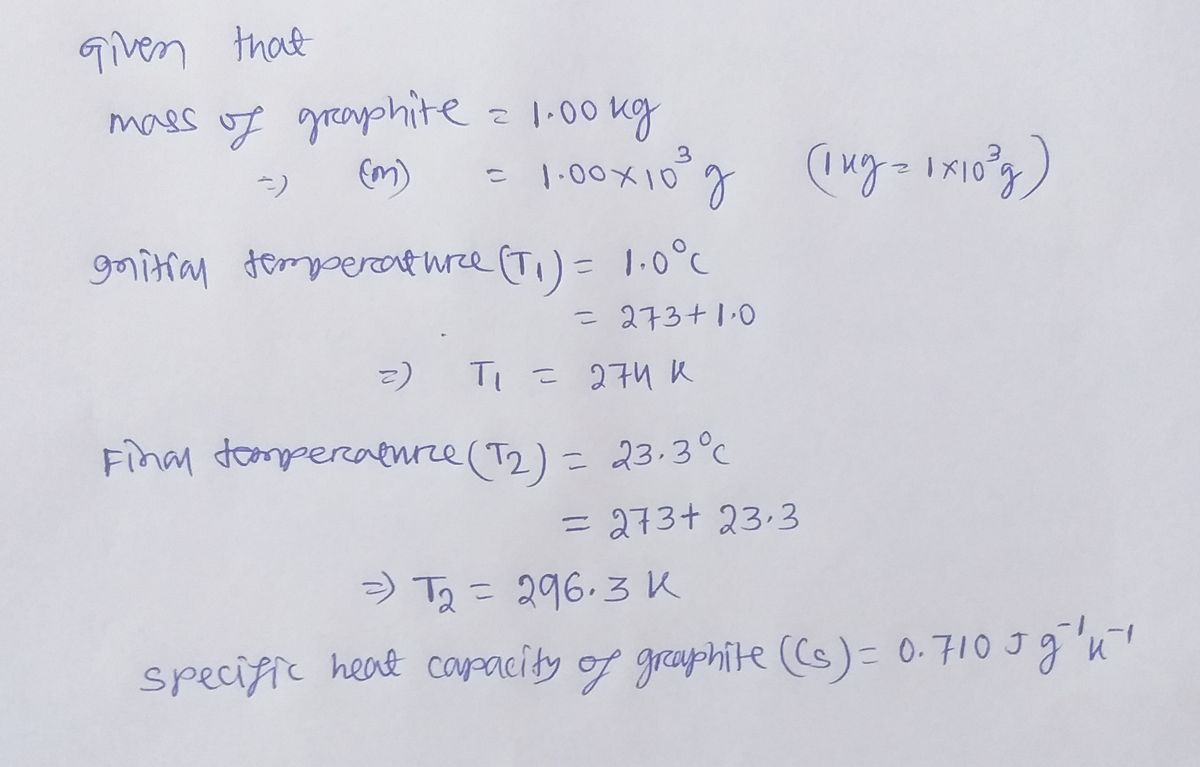 Given that
mass of graphite = 1.00 kg
=> (m) = 1.00 × 10³ g (1 kg = 1×10³ g)
Initial temperature (T₁) = 1.0°C
= 273 + 1.0
=> T₁ = 274 K
Final temperature (T₂) = 23.3°C
= 273 + 23.3
=> T₂ = 296.3 K
specific heat capacity of graphite (Cs) = 0.710 J g⁻¹ K⁻¹